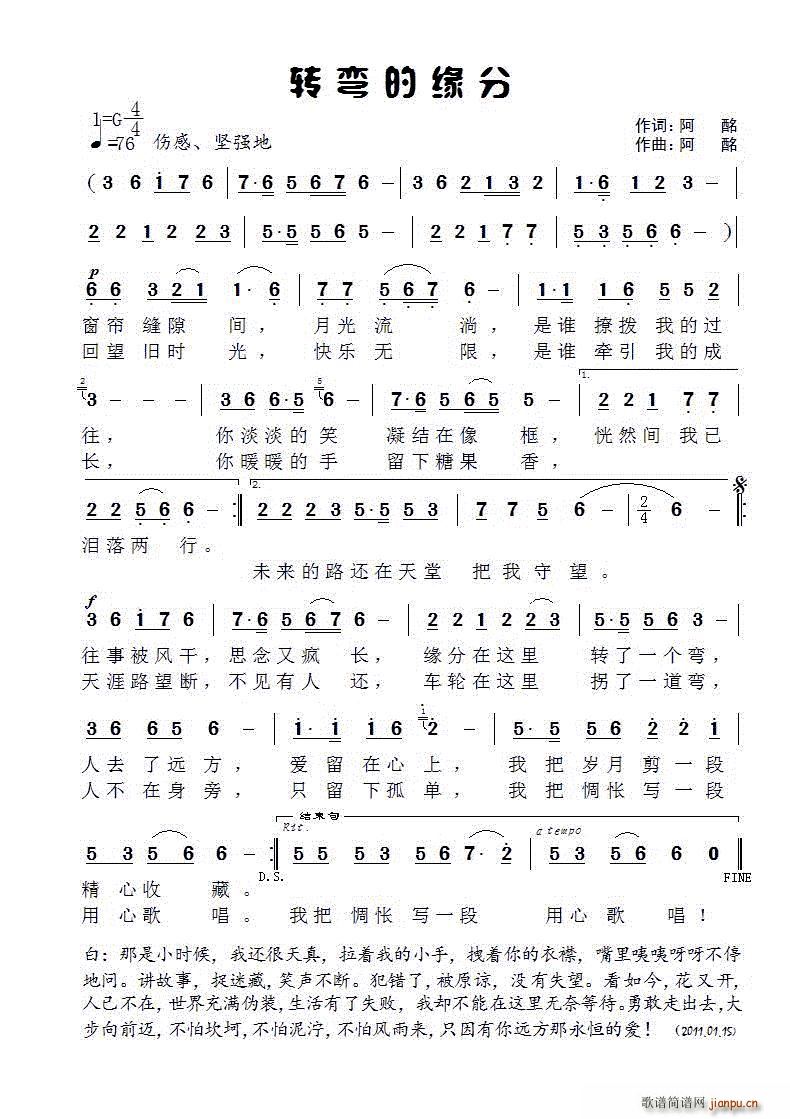 转弯的缘分
1=G 4/4
♩=76 伤感、坚强地
作词：阿 酩
作曲：阿 酩
( 3 6 i 7 6 | 7·6 5 6 7 6 – | 3 6 2 1 3 2 | 1·6 1 2 3 – |
2 2 1 2 2 3 | 5·5 5 6 5 – | 2 2 1 7 7 | 5 3 5 6 6 – )
p
6 6 3 2 1 1· 6 | 7 7 5 6 7 6 – | 1·1 1 6 5 5 2
窗帘 缝隙 间， 月光 流 淌， 是谁 撩拨 我的过
回望 旧时 光， 快乐 无 限， 是谁 牵引 我的成
2 3 – – – | 3 6 6·5 5 6 – | 7·6 5 6 5 5 – | 1. 2 2 1 7 7
往， 你淡淡的 笑 凝结在像 框， 恍然间 我已
长， 你暖暖的 手 留下糖果 香，
2 2 5 6 6 – :| 2. 2 2 2 3 5·5 5 3 | 7 7 5 6 – | 2/4 6 – :|
泪落两 行。
未来的路还在天堂 把我守望。
f
3 6 i 7 6 | 7·6 5 6 7 6 – | 2 2 1 2 2 2 3 | 5·5 5 6 3 –
往事被风干，思念又疯 长， 缘分在这里 转了一个弯，
天涯路望断，不见有人 还， 车轮在这里 拐了一道弯，
3 6 6 5 6 – | i·i i 6 i 2 – | 5·5 5 6 2 2 i
人去 了远方， 爱留在心上， 我 把 岁月 剪一段
人不 在身旁， 只留下孤单， 我 把 惆怅 写一段
结束句
Rit.
a tempo
5 3 5 6 6 – :| 5 5 5 3 5 6 7· 2 | 5 3 5 6 6 0
D.S.
FINE
精 心收 藏。
用 心歌 唱。 我把 惆怅 写一段 用心 歌 唱！
白：那是小时候，我还很天真，拉着我的小手，拽着你的衣襟，嘴里咦咦呀呀不停
地问。讲故事，捉迷藏，笑声不断。犯错了，被原谅，没有失望。看如今，花又开，
人已不在，世界充满伪装，生活有了失败，我却不能在这里无奈等待。勇敢走出去，大
步向前迈，不怕坎坷，不怕泥泞，不怕风雨来，只因有你远方那永恒的爱！ (2011.01.15)
歌谱简谱网 jianpu.cn